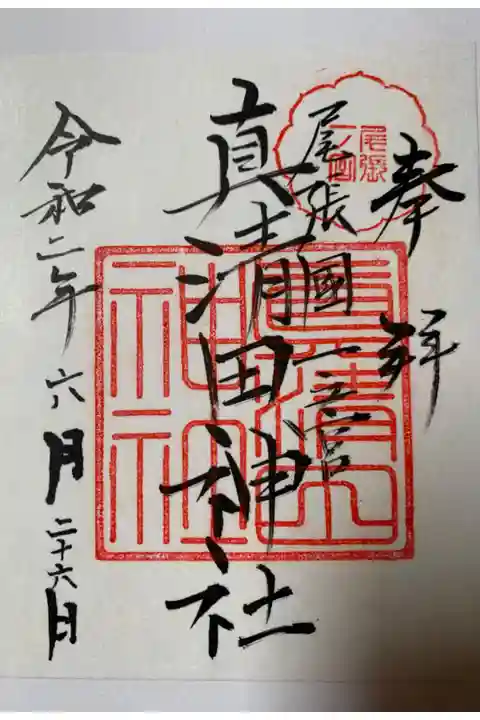 奉拝
尾張
一宮
尾張國一之宮
真清田神社
真清田
神社
令和二年六月二十六日